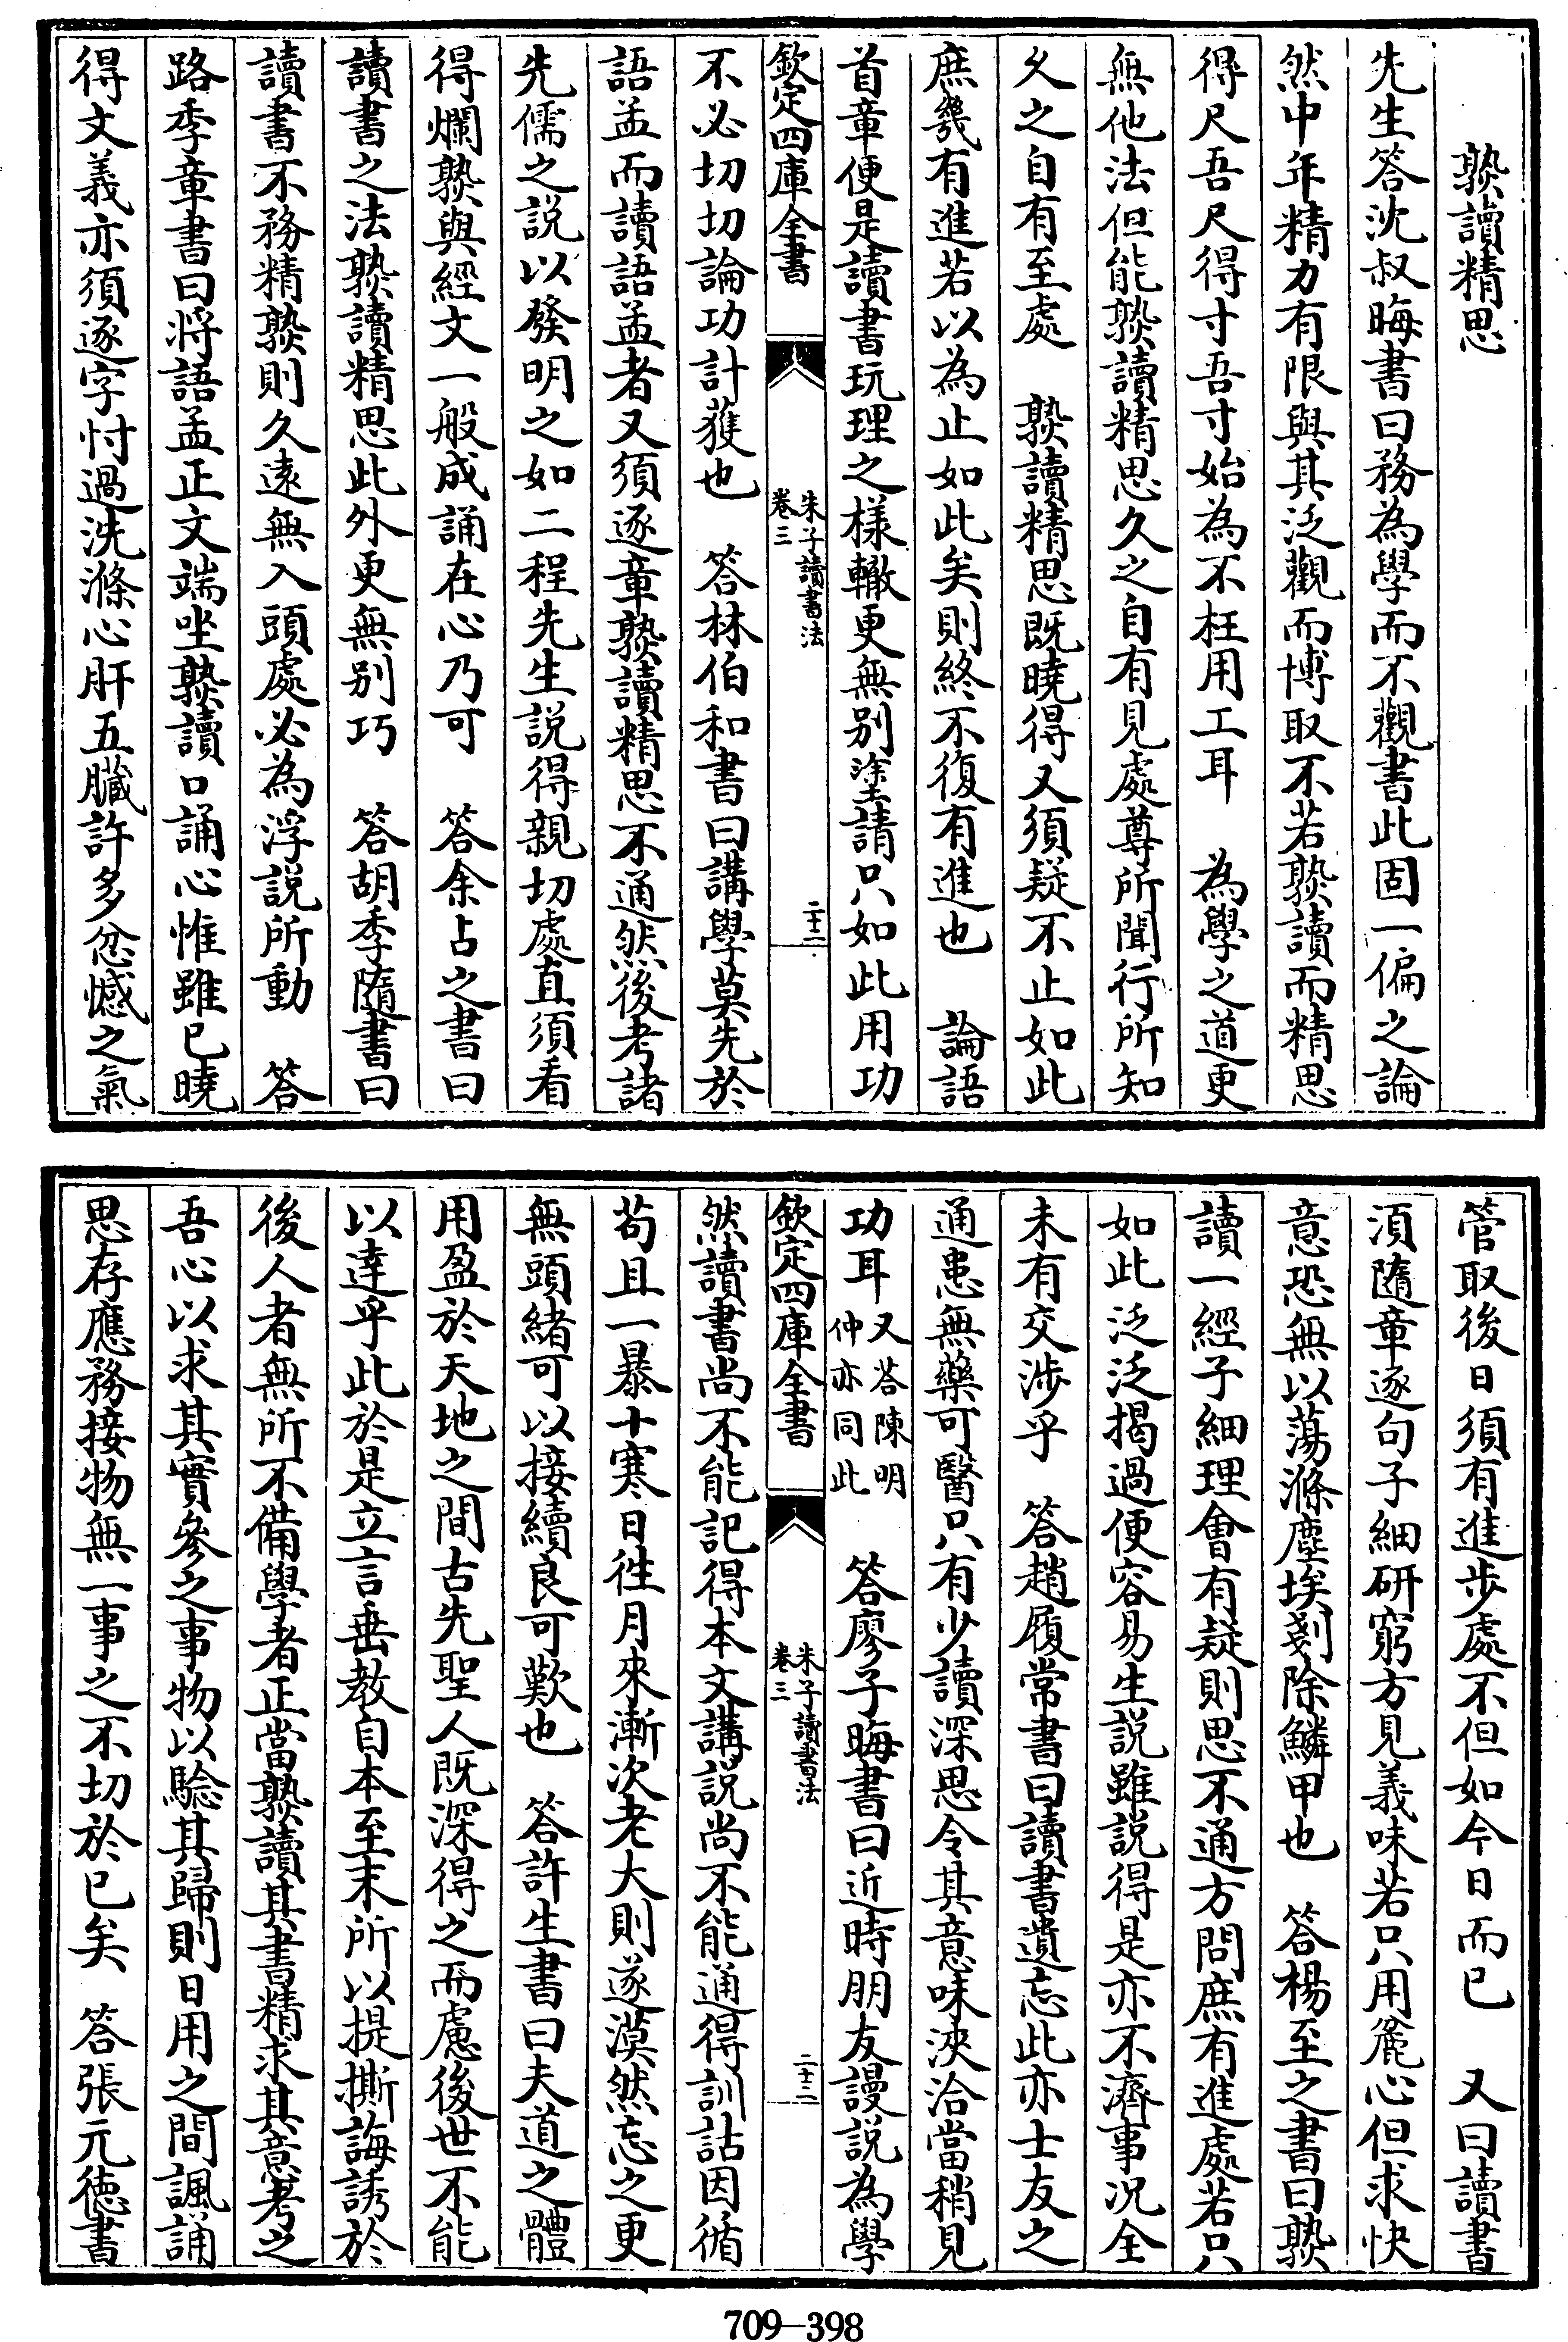 熟讀精思
先生答沈叔晦書曰務為學而不觀書此固一偏之論
然中年精力有限與其泛觀而博取不若熟讀而精思
得尺吾尺得寸吾寸始為不枉用工耳　為學之道更
無他法但能熟讀精思久之自有見處尊所聞行所知
乆之自有至處　熟讀精思既曉得又須疑不止如此
庶幾有進若以為止如此矣則終不復有進也　論語
首章便是讀書玩理之様轍更無别塗請只如此用功
欽定四庫全書
朱子讀書法
卷三
二十二
不必切切論功計獲也　答林伯和書曰講學莫先於
語孟而讀語孟者又須逐章熟讀精思不通然後考諸
先儒之説以發明之如二程先生説得親切處直須看
得爛熟與經文一般成誦在心乃可　答余占之書曰
讀書之法熟讀精思此外更無别巧　答胡季隨書曰
讀書不務精熟則久遠無入頭處必為浮説所動　答
路季章書曰将語孟正文端坐熟讀口誦心惟雖已曉
得文義亦須逐字忖過洗滌心肝五臟許多忿憾之氣
管取後日須有進步處不但如今日而已　又曰讀書
湏隨章逐句子細研窮方見義味若只用麄心但求快
意恐無以蕩滌塵埃剗除鱗甲也　答楊至之書曰熟
讀一經子細理會有疑則思不通方問庶有進處若只
如此泛泛揭過便容易生説雖説得是亦不濟事况全
未有交涉乎　答趙履常書曰讀書遺忘此亦士友之
通患無藥可醫只有少讀深思令其意味浹洽當稍見
功耳又荅陳明仲亦同此　答廖子晦書曰近時朋友謾説為學
欽定四庫全書
朱子讀書法
卷三
二十三
然讀書尚不能記得本文講説尚不能通得訓詁因循
苟且一暴十寒日徃月來漸次老大則遂漠然忘之更
無頭緒可以接續良可歎也　答許生書曰夫道之體
用盈於天地之間古先聖人既深得之而慮後世不能
以達乎此於是立言垂教自本至末所以提撕誨誘於
後人者無所不備學者正當熟讀其書精求其意考之
吾心以求其實參之事物以驗其歸則日用之間諷誦
思存應務接物無一事之不切於已矣　答張元徳書
709—398